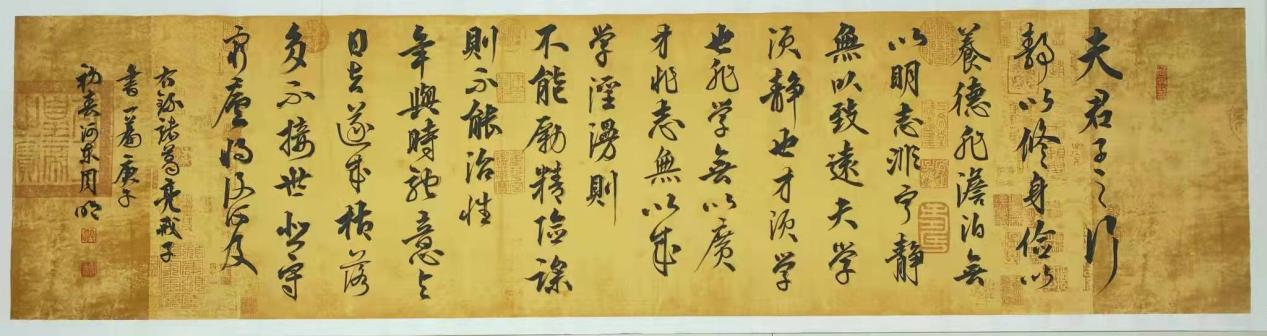 夫君子之行
静以修身儉以
養德非澹泊無
以明志非宁静
無以致遠夫學
須静也才須學
也非學無以廣
才非志無以成
学淫漫則
不能励精險躁
則不能治性
年與時馳意与
日去遂成枯落
多不接世悲守
窮廬將復何及
右録諸葛亮戒子
書一篇庚子
初春河東周明